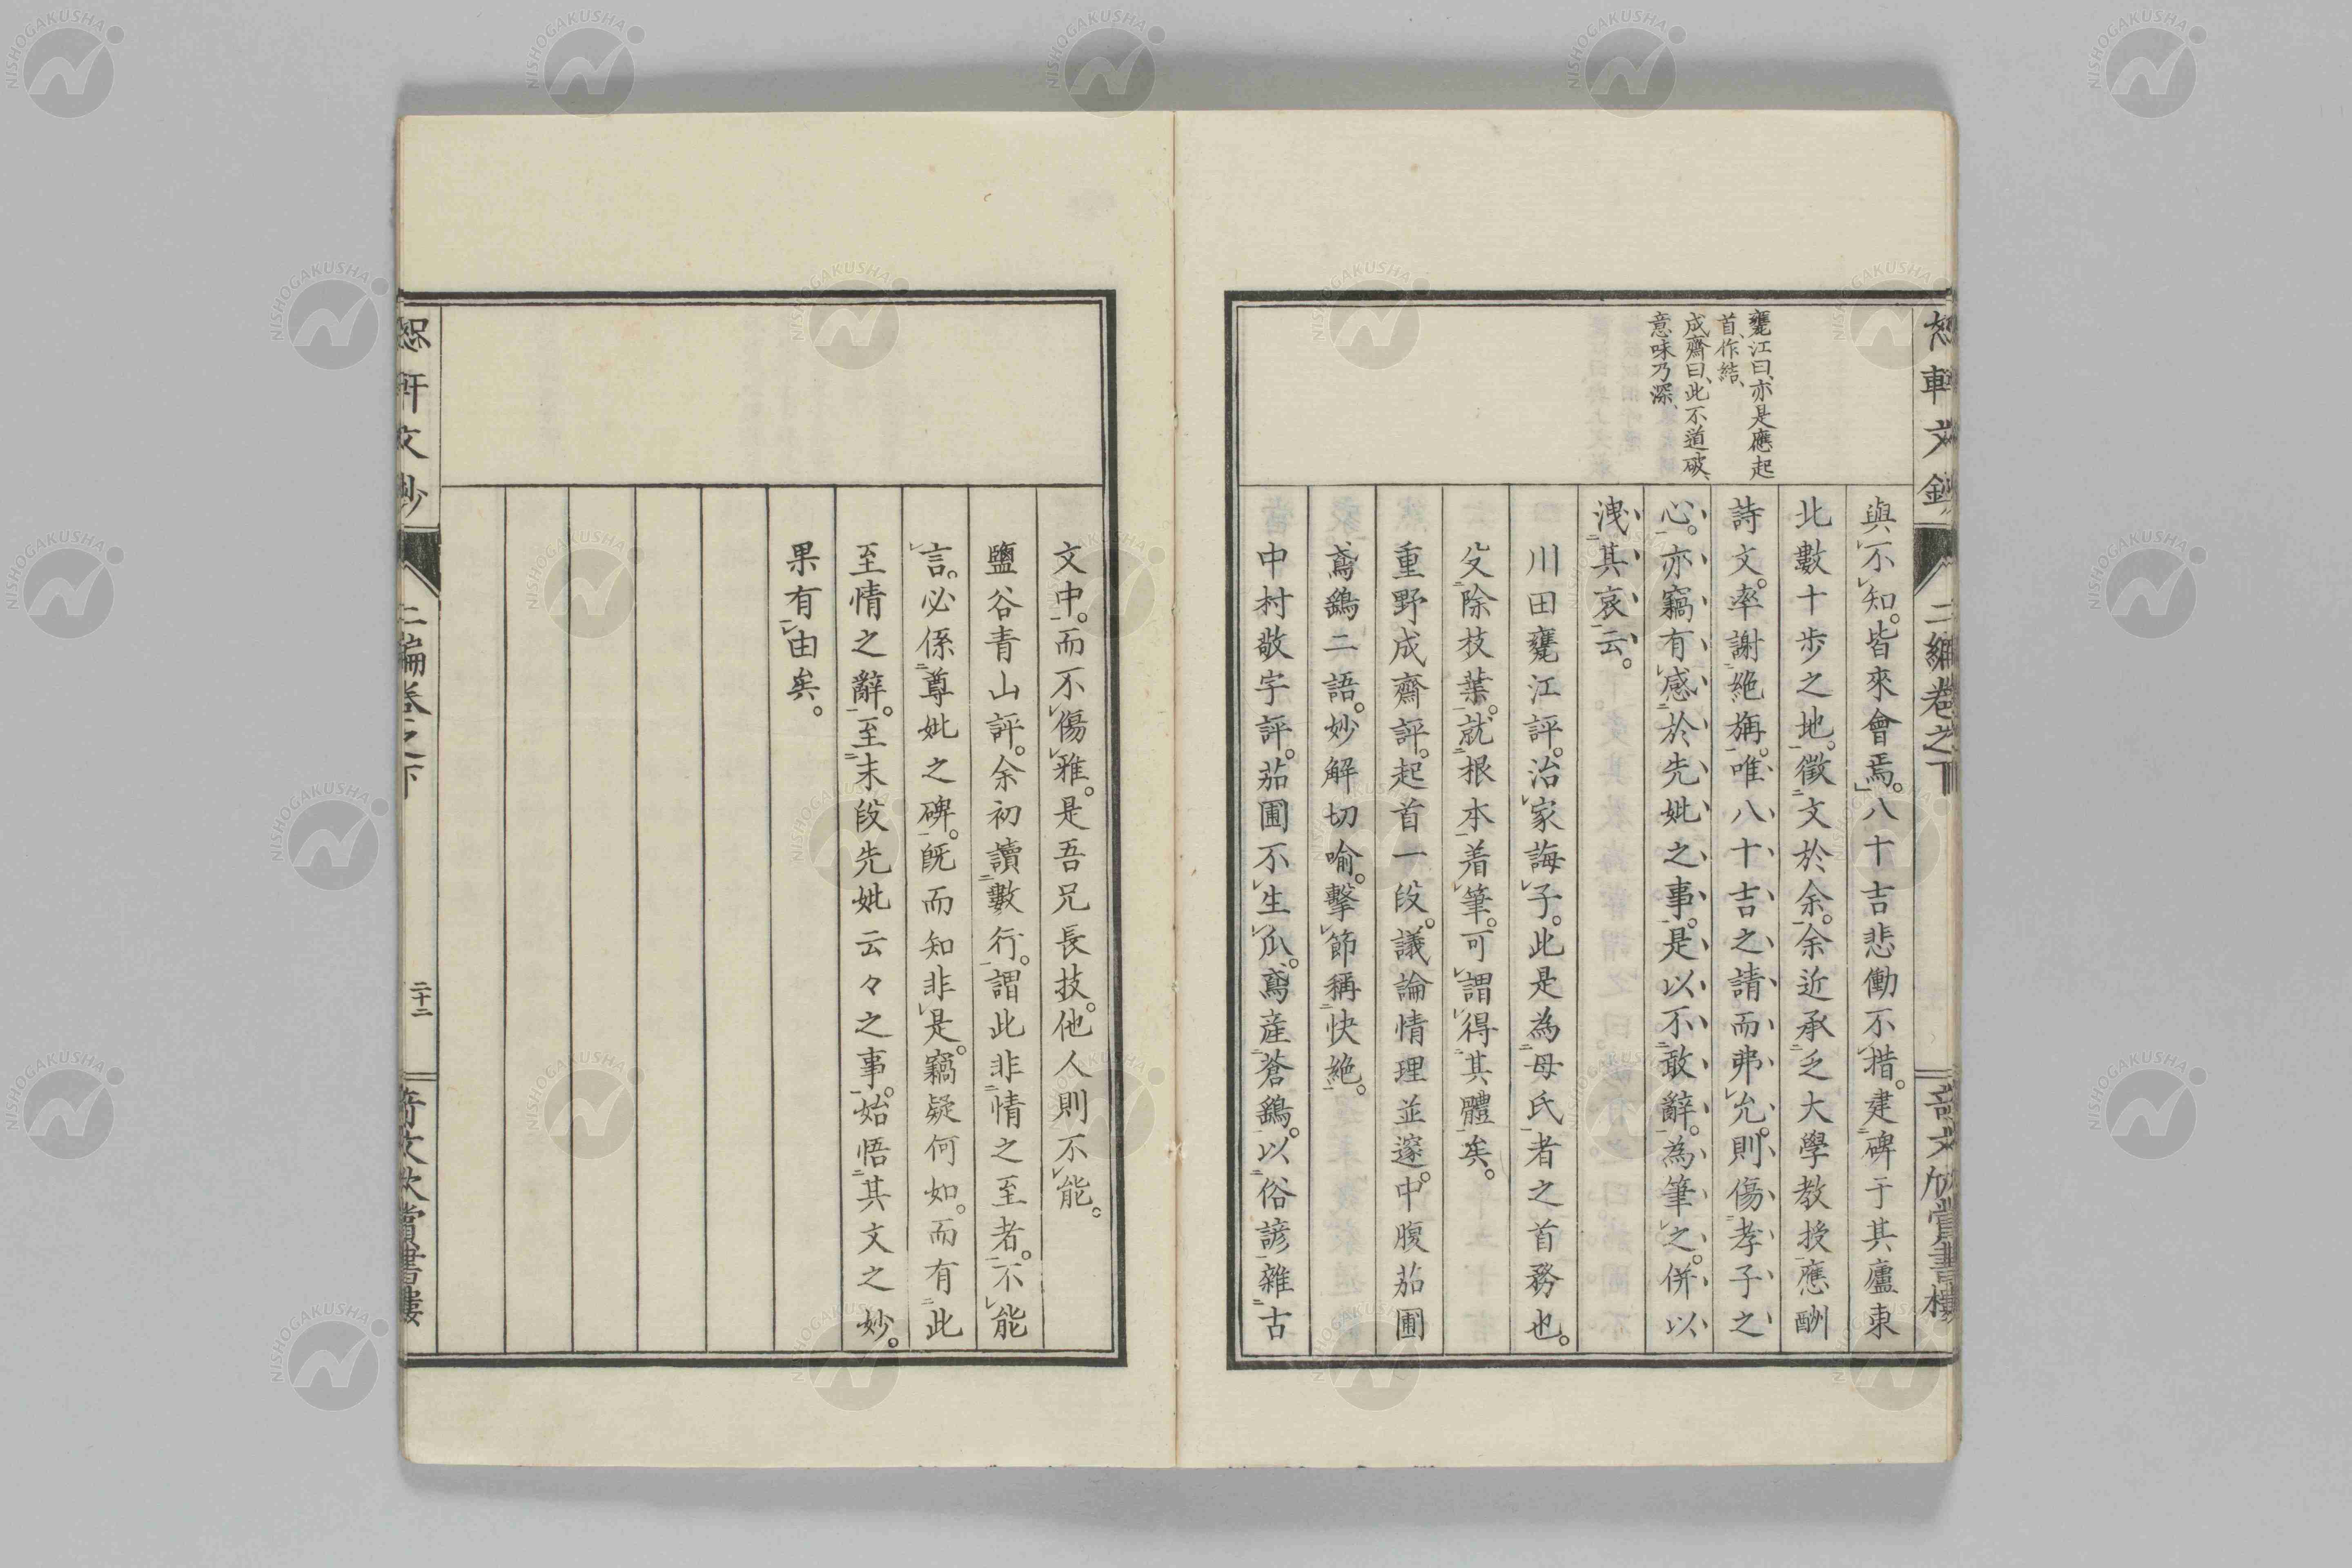 恕軒文鈔
二編卷之下
奇文欣賞書樓
甕江曰、亦是應起
首、作結、
成齋曰、此不道破、
意味乃深、
與不知。皆來會焉。」八十吉悲慟不措。建碑于其廬東
北數十歩之地。徵文於余。余近承乏大學教授應酬
詩文。率謝絶㫋。唯八十吉之請而弗允。則傷孝子之
心。亦竊有感於先妣之事。是以不敢辭。為筆之。併以
洩其哀云。
川田甕江評。治家誨子。此是為母氏者之首務也。
攵除枝葉。就根本着筆。可謂得其體矣。
重野成齋評。起首一段。議論情理並邃。中腹茄圃
鳶鷂二語。妙解切喻。擊節稱快絶。
中村敬宇評。茄圃不生瓜。鳶産蒼鷂。以俗諺雜古
文中。而不傷雅。是吾兄長技。他人則不能。
鹽谷青山評。余初讀數行。謂此非情之至者。不能
言。必係尊妣之碑。既而知非是。竊疑何如。而有此
至情之辭。至末段先妣云々之事。始悟其文之妙。
果有由矣。
恕軒文鈔
二編卷之下
二十二
奇文欣賞書樓
NISHOGAKUSHA